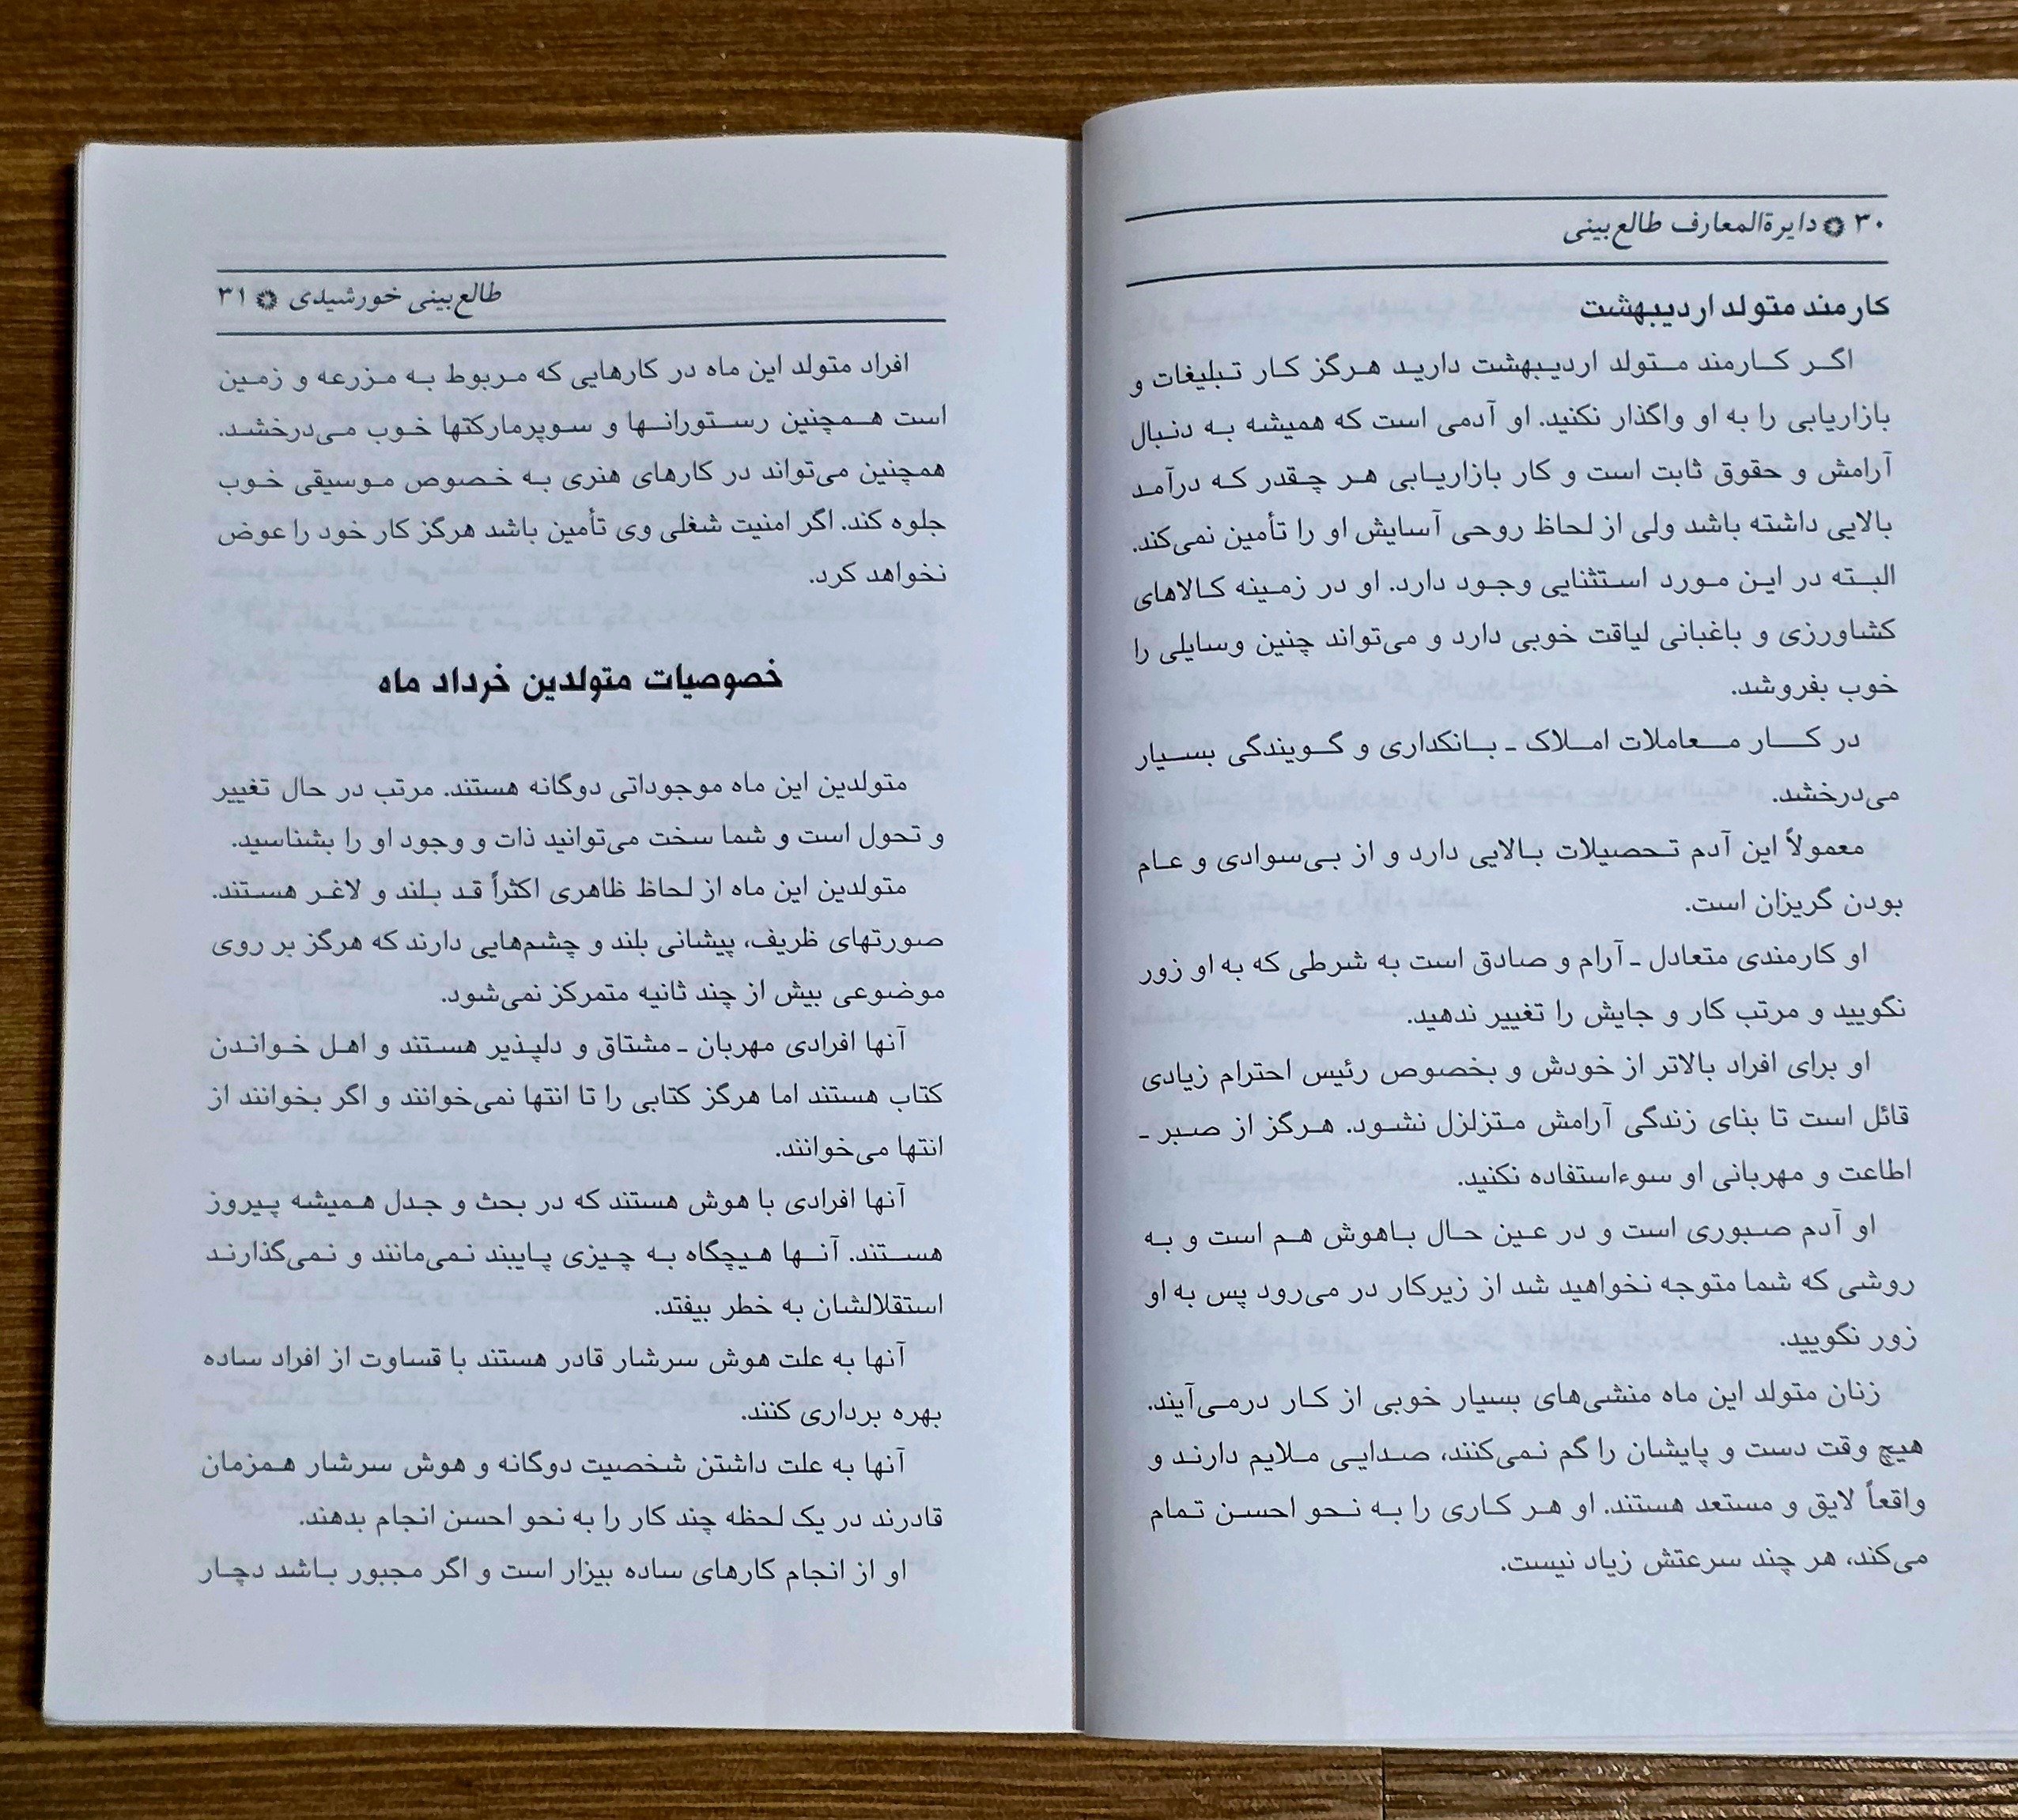 ۳۰ ❁ دایرةالمعارف طالع‌بینی
کارمند متولد اردیبهشت
اگر کارمند متولد اردیبهشت دارید هرگز کار تبلیغات و
بازاریابی را به او واگذار نکنید. او آدمی است که همیشه به دنبال
آرامش و حقوق ثابت است و کار بازاریابی هر چقدر که درآمد
بالایی داشته باشد ولی از لحاظ روحی آسایش او را تأمین نمی‌کند.
البته در این مورد استثنایی وجود دارد. او در زمینه کالاهای
کشاورزی و باغبانی لیاقت خوبی دارد و می‌تواند چنین وسایلی را
خوب بفروشد.
در کار معاملات املاک ـ بانکداری و گویندگی بسیار
می‌درخشد.
معمولاً این آدم تحصیلات بالایی دارد و از بی‌سوادی و عام
بودن گریزان است.
او کارمندی متعادل ـ آرام و صادق است به شرطی که به او زور
نگویید و مرتب کار و جایش را تغییر ندهید.
او برای افراد بالاتر از خودش و بخصوص رئیس احترام زیادی
قائل است تا بنای زندگی آرامش متزلزل نشود. هرگز از صبر ـ
اطاعت و مهربانی او سوءاستفاده نکنید.
او آدم صبوری است و در عین حال باهوش هم است و به
روشی که شما متوجه نخواهید شد از زیرکار در می‌رود پس به او
زور نگویید.
زنان متولد این ماه منشی‌های بسیار خوبی از کار درمی‌آیند.
هیچ وقت دست و پایشان را گم نمی‌کنند، صدایی ملایم دارند و
واقعاً لایق و مستعد هستند. او هر کاری را به نحو احسن تمام
می‌کند، هر چند سرعتش زیاد نیست.
طالع‌بینی خورشیدی ❁ ۳۱
افراد متولد این ماه در کارهایی که مربوط به مزرعه و زمین
است همچنین رستورانها و سوپرمارکتها خوب می‌درخشد.
همچنین می‌تواند در کارهای هنری به خصوص موسیقی خوب
جلوه کند. اگر امنیت شغلی وی تأمین باشد هرگز کار خود را عوض
نخواهد کرد.
خصوصیات متولدین خرداد ماه
متولدین این ماه موجوداتی دوگانه هستند. مرتب در حال تغییر
و تحول است و شما سخت می‌توانید ذات و وجود او را بشناسید.
متولدین این ماه از لحاظ ظاهری اکثراً قد بلند و لاغر هستند.
صورتهای ظریف، پیشانی بلند و چشم‌هایی دارند که هرگز بر روی
موضوعی بیش از چند ثانیه متمرکز نمی‌شود.
آنها افرادی مهربان ـ مشتاق و دلپذیر هستند و اهل خواندن
کتاب هستند اما هرگز کتابی را تا انتها نمی‌خوانند و اگر بخوانند از
انتها می‌خوانند.
آنها افرادی با هوش هستند که در بحث و جدل همیشه پیروز
هستند. آنها هیچگاه به چیزی پایبند نمی‌مانند و نمی‌گذارند
استقلالشان به خطر بیفتد.
آنها به علت هوش سرشار قادر هستند با قساوت از افراد ساده
بهره برداری کنند.
آنها به علت داشتن شخصیت دوگانه و هوش سرشار همزمان
قادرند در یک لحظه چند کار را به نحو احسن انجام بدهند.
او از انجام کارهای ساده بیزار است و اگر مجبور باشد دچار